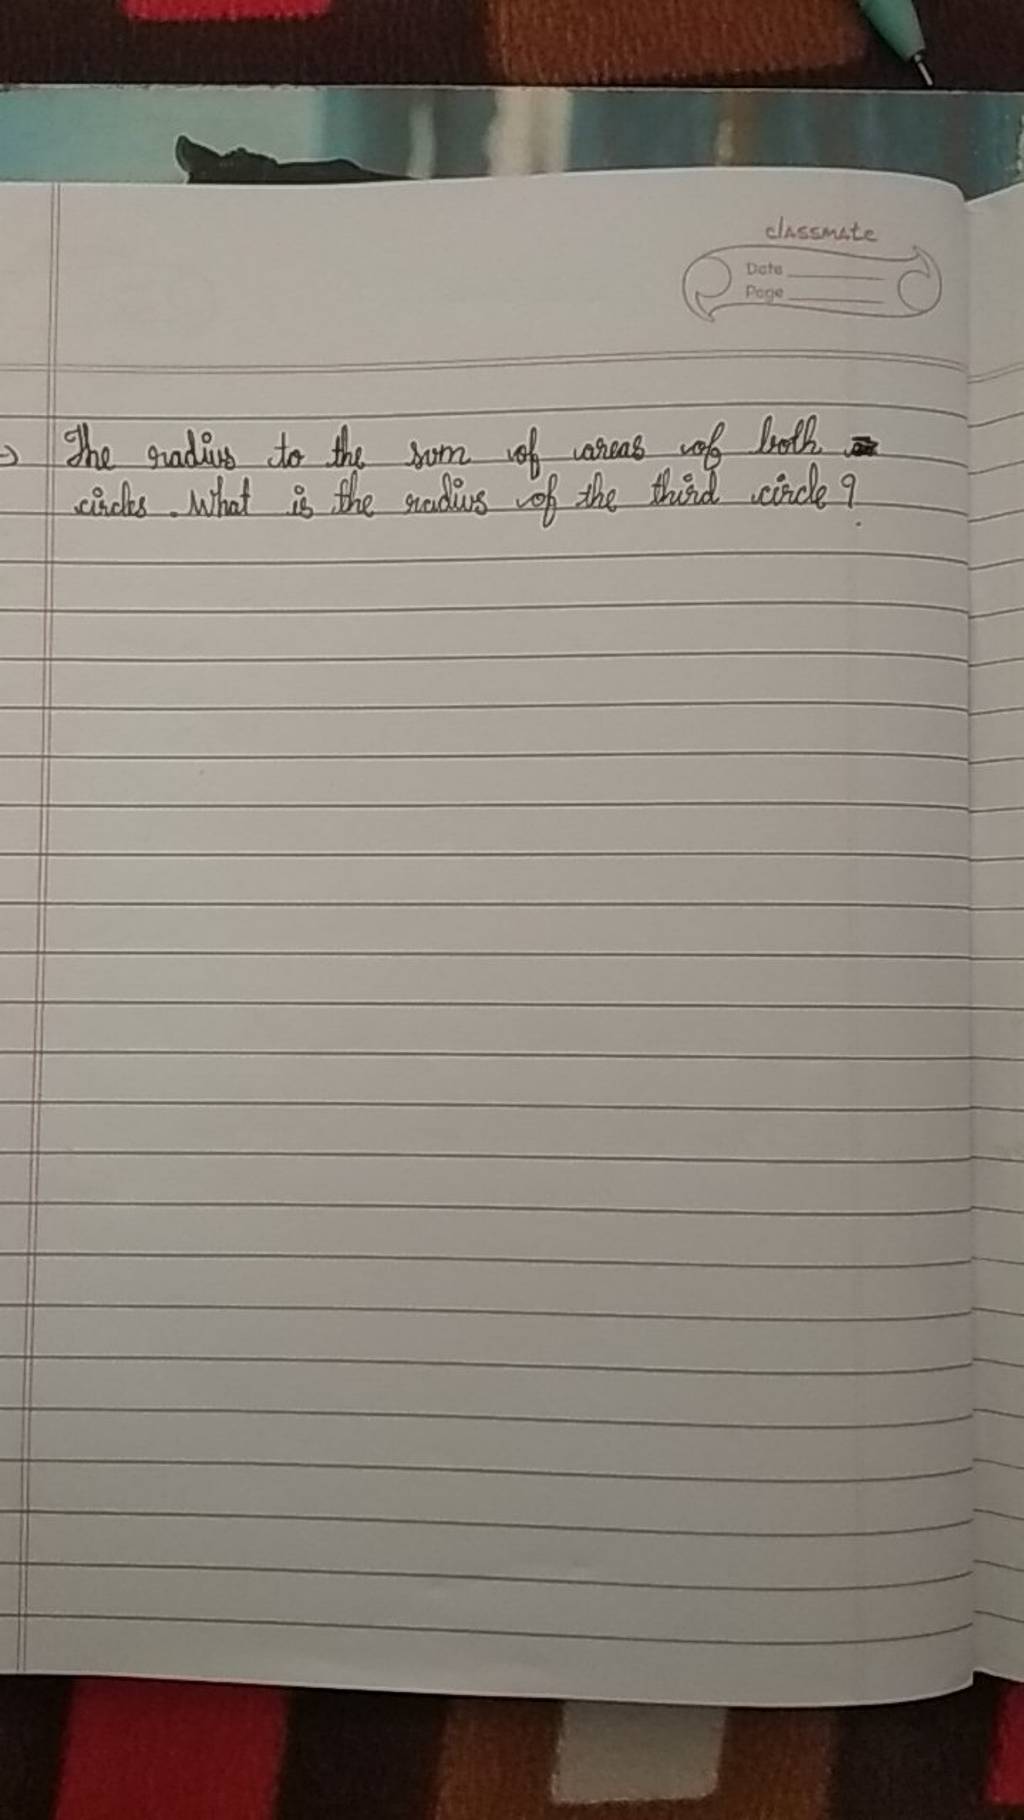 classmate
Date
Page
→ The radius to the sum of areas of both
circles. What is the radius of the third circle?